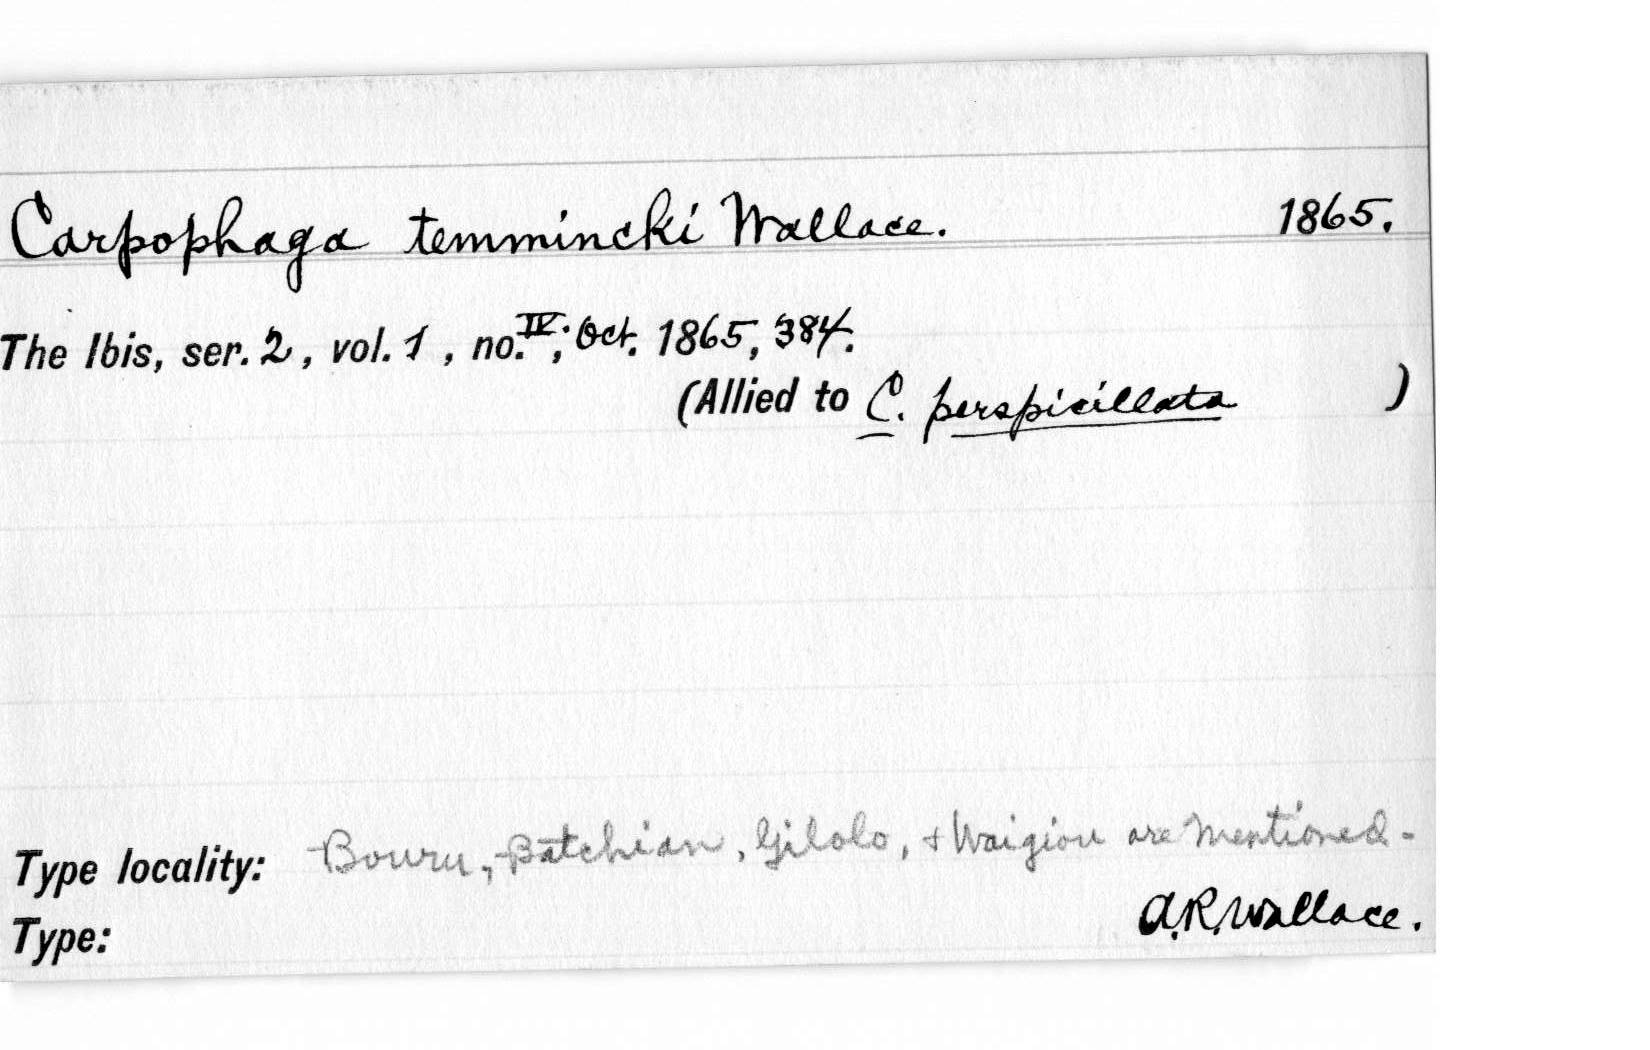 Carpophaga temmincki Wallace. 1865.
The Ibis, ser. 2, vol. 1, no. IV., Oct. 1865, 384.
(Allied to C. perspicillata )
Type locality: Bouru, Batchian, Gilolo, + Waigiou are mentioned -
Type: A.R. Wallace.